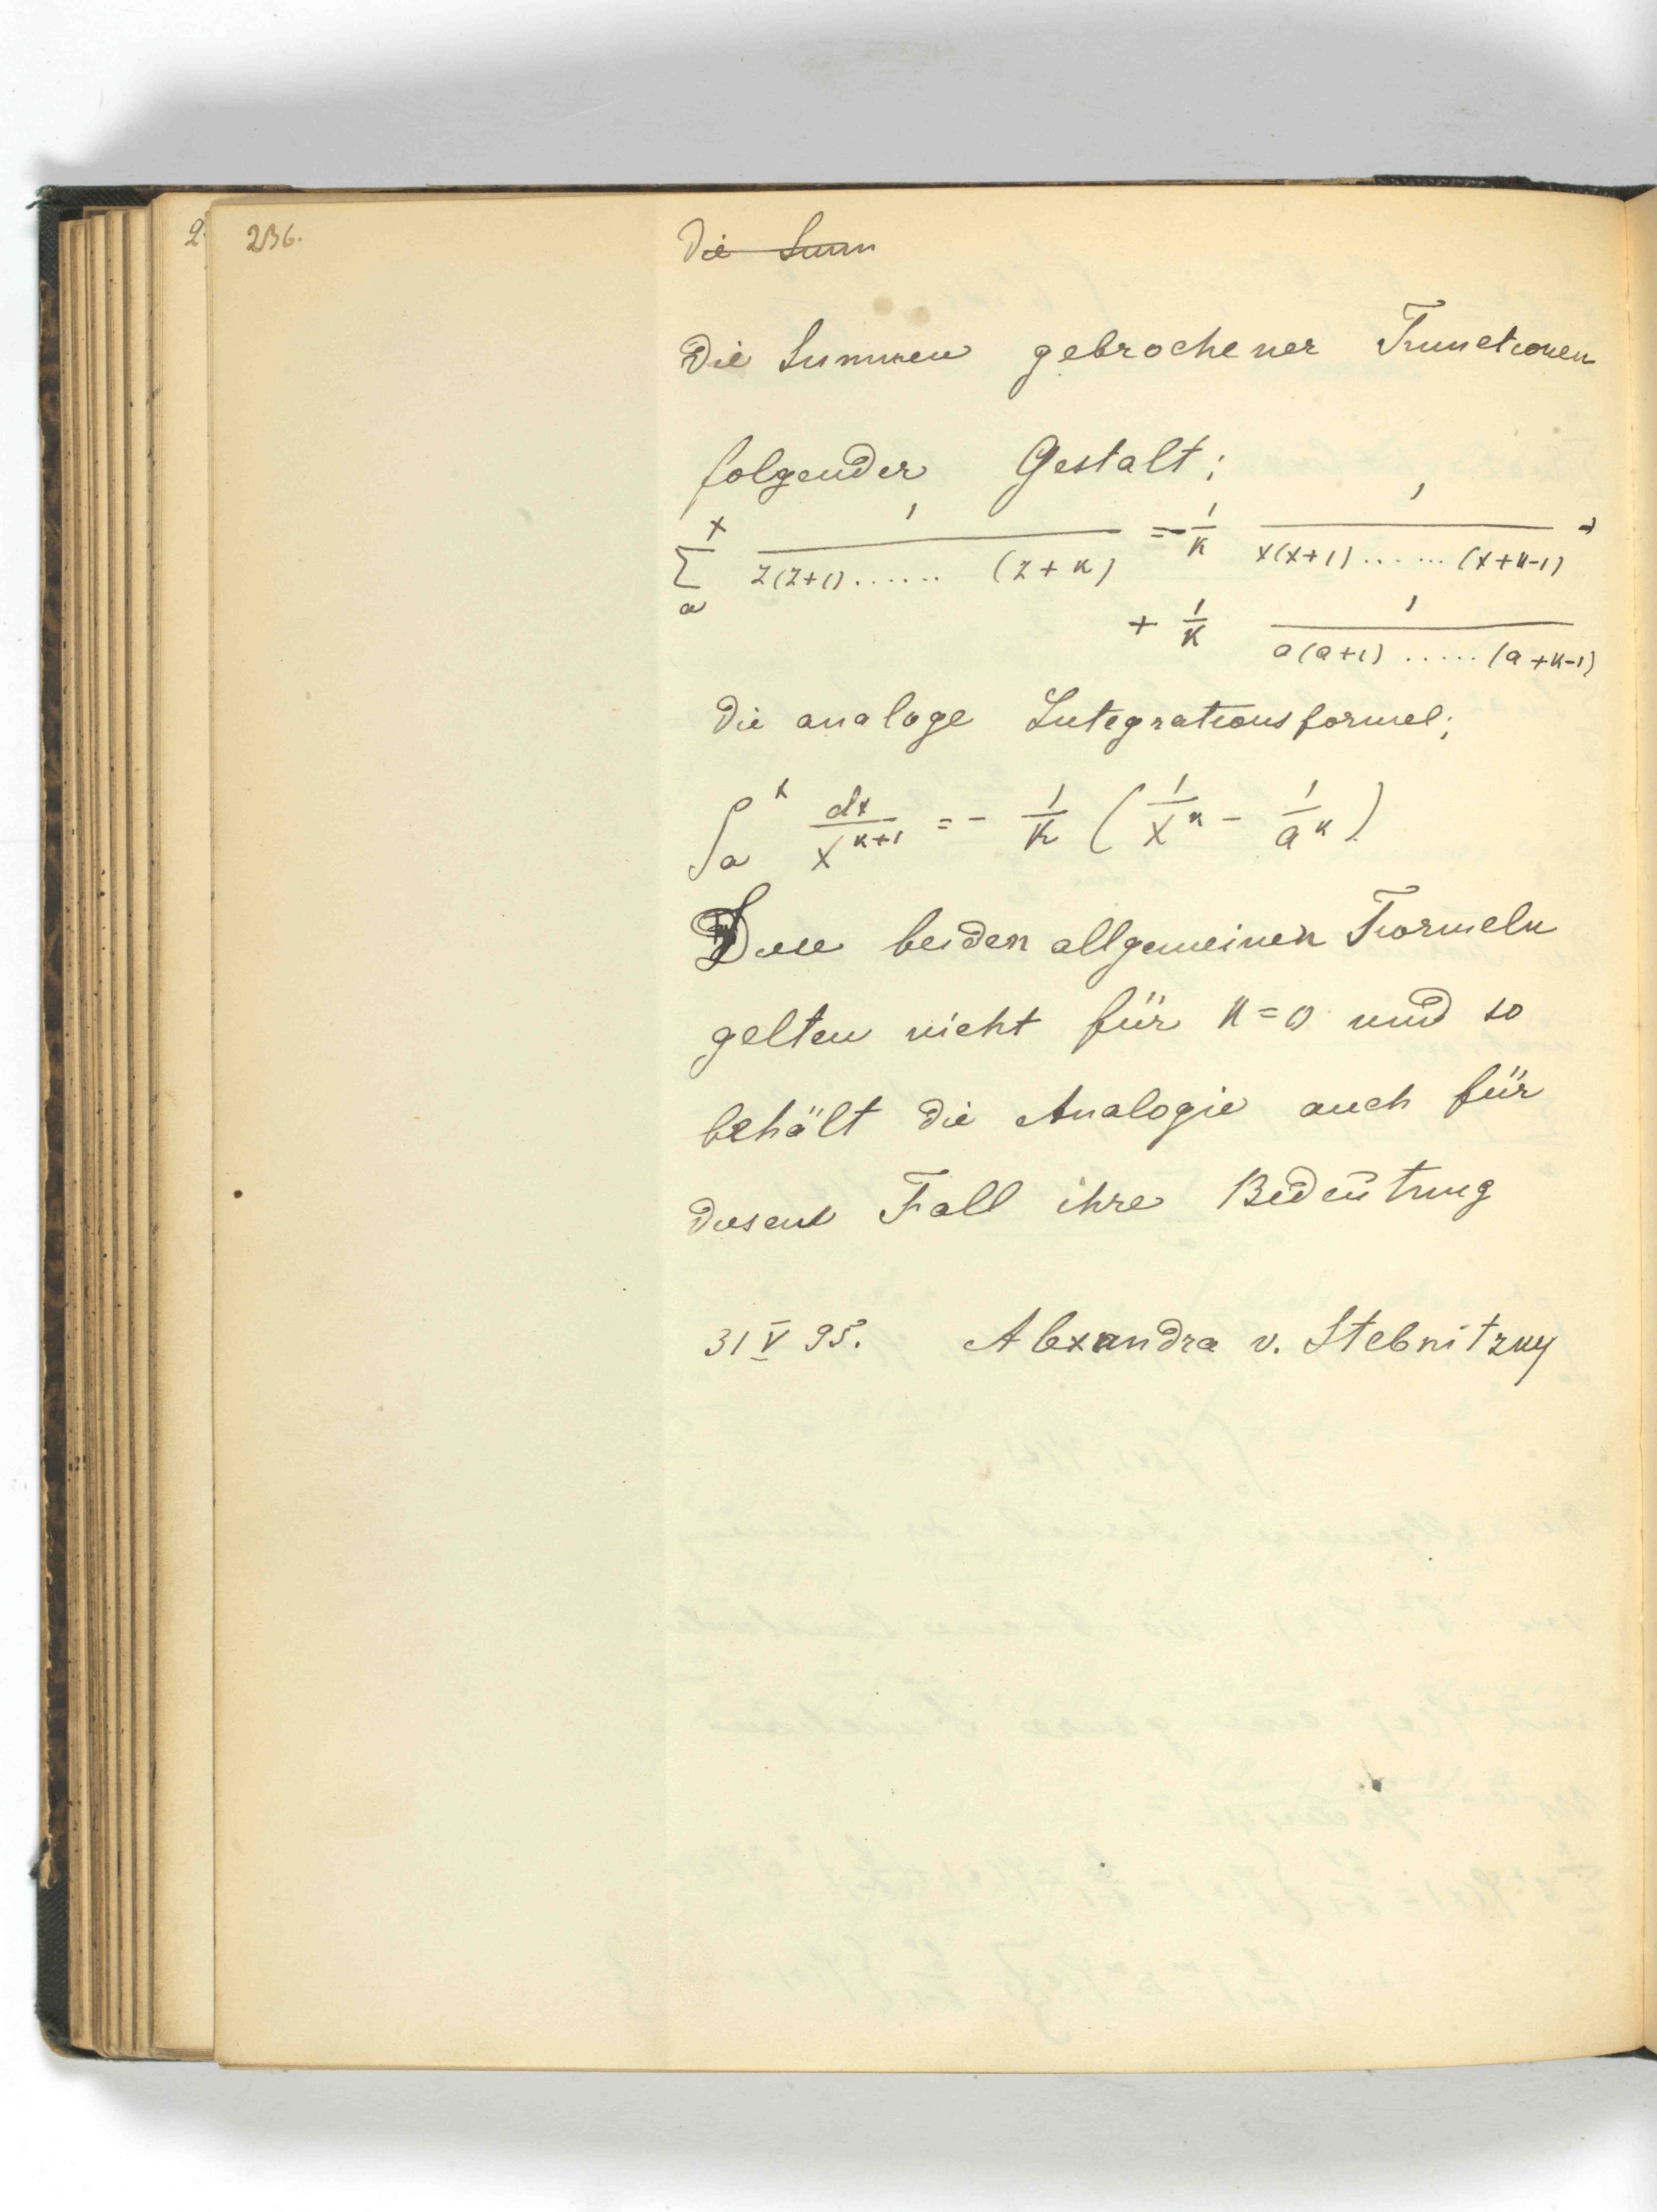 2
236.
Die Summ
Die Summen gebrochener Functionen
folgender Gestalt:
\sum_a^x \frac{1}{z(z+1)......(z+k)} = -\frac{1}{k} \frac{1}{x(x+1)......(x+k-1)} +
+ \frac{1}{k} \frac{1}{a(a+1).....(a+k-1)}
Die analoge Integrationsformel;
\int_a^x \frac{dx}{x^{k+1}} = -\frac{1}{k} (\frac{1}{x^k} - \frac{1}{a^k})
Diese beiden allgemeinen Formeln
gelten nicht für k=0 und so
behält die Analogie auch für
diesen Fall ihre Bedeutung
31 V 95. Alexandra v. Stebnitzky